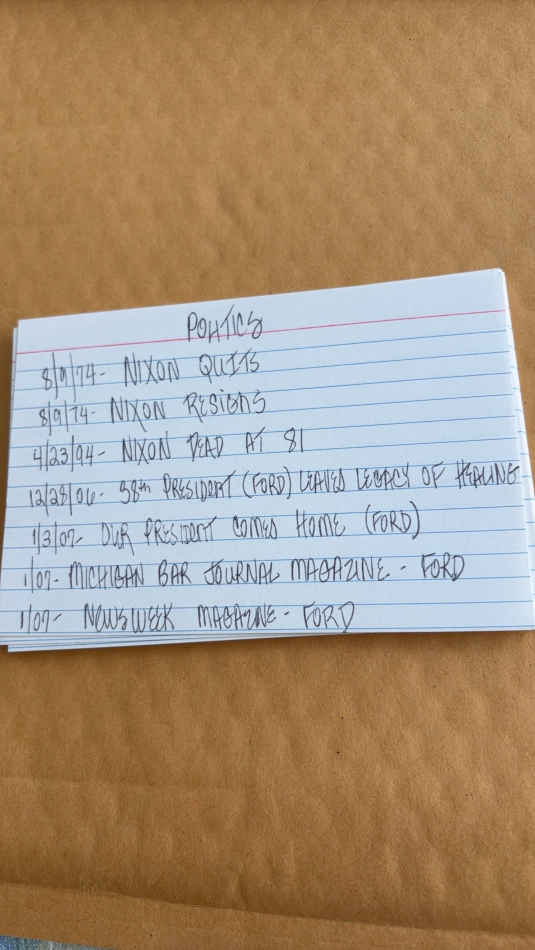 POLITICS
8/9/74- NIXON QUITS
8/9/74- NIXON RESIGNS
4/23/94- NIXON DEAD AT 81
12/28/06- 38th PRESIDENT (FORD) LEAVES LEGACY OF HEALING
1/3/07- OUR PRESIDENT COMES HOME (FORD)
1/07- MICHIGAN BAR JOURNAL MAGAZINE - FORD
1/07- NEWSWEEK MAGAZINE - FORD